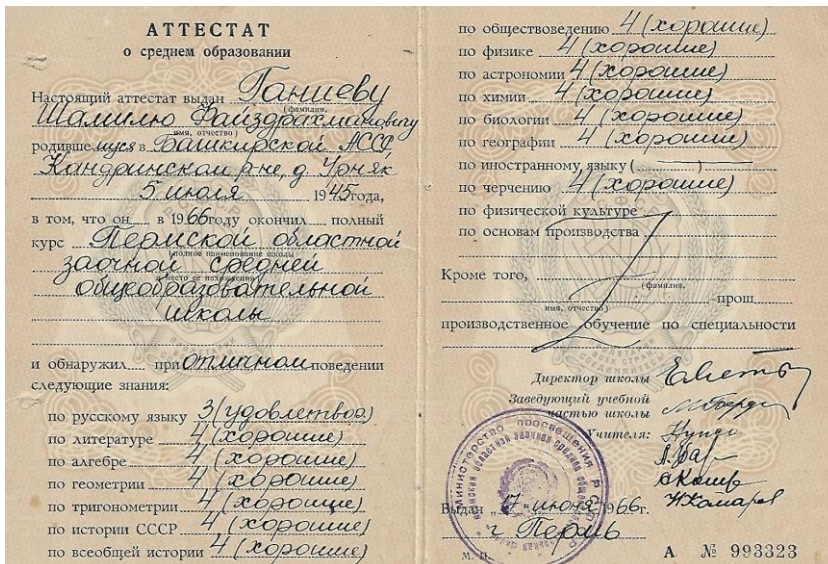 АТТЕСТАТ
о среднем образовании
Настоящий аттестат выдан Ганиеву
(фамилия,
Шамилю Файздрахмановичу
имя, отчество)
родившемуся в Башкирской АССР,
Кандринском р-не, д. Урняк
5 июля 1945 года,
в том, что он в 1966 году окончил полный
курс Пермской областной
(полное наименование школы
заочной средней
и место её нахождения)
общеобразовательной
школы
и обнаружил при отличном поведении
следующие знания:
по русскому языку 3 (удовлетвор)
по литературе 4 (хорошие)
по алгебре 4 (хорошие)
по геометрии 4 (хорошие)
по тригонометрии 4 (хорошие)
по истории СССР 4 (хорошие)
по всеобщей истории 4 (хорошие)
по обществоведению 4 (хорошие)
по физике 4 (хорошие)
по астрономии 4 (хорошие)
по химии 4 (хорошие)
по биологии 4 (хорошие)
по географии 4 (хорошие)
по иностранному языку ( )
по черчению 4 (хорошие)
по физической культуре
по основам производства
Кроме того,
(фамилия,
имя, отчество) прош
производственное обучение по специальности
Директор школы
Заведующий учебной
частью школы
Учителя:
Выдан „17 июня 1966 г.
г. Пермь
М. П.
А № 993323